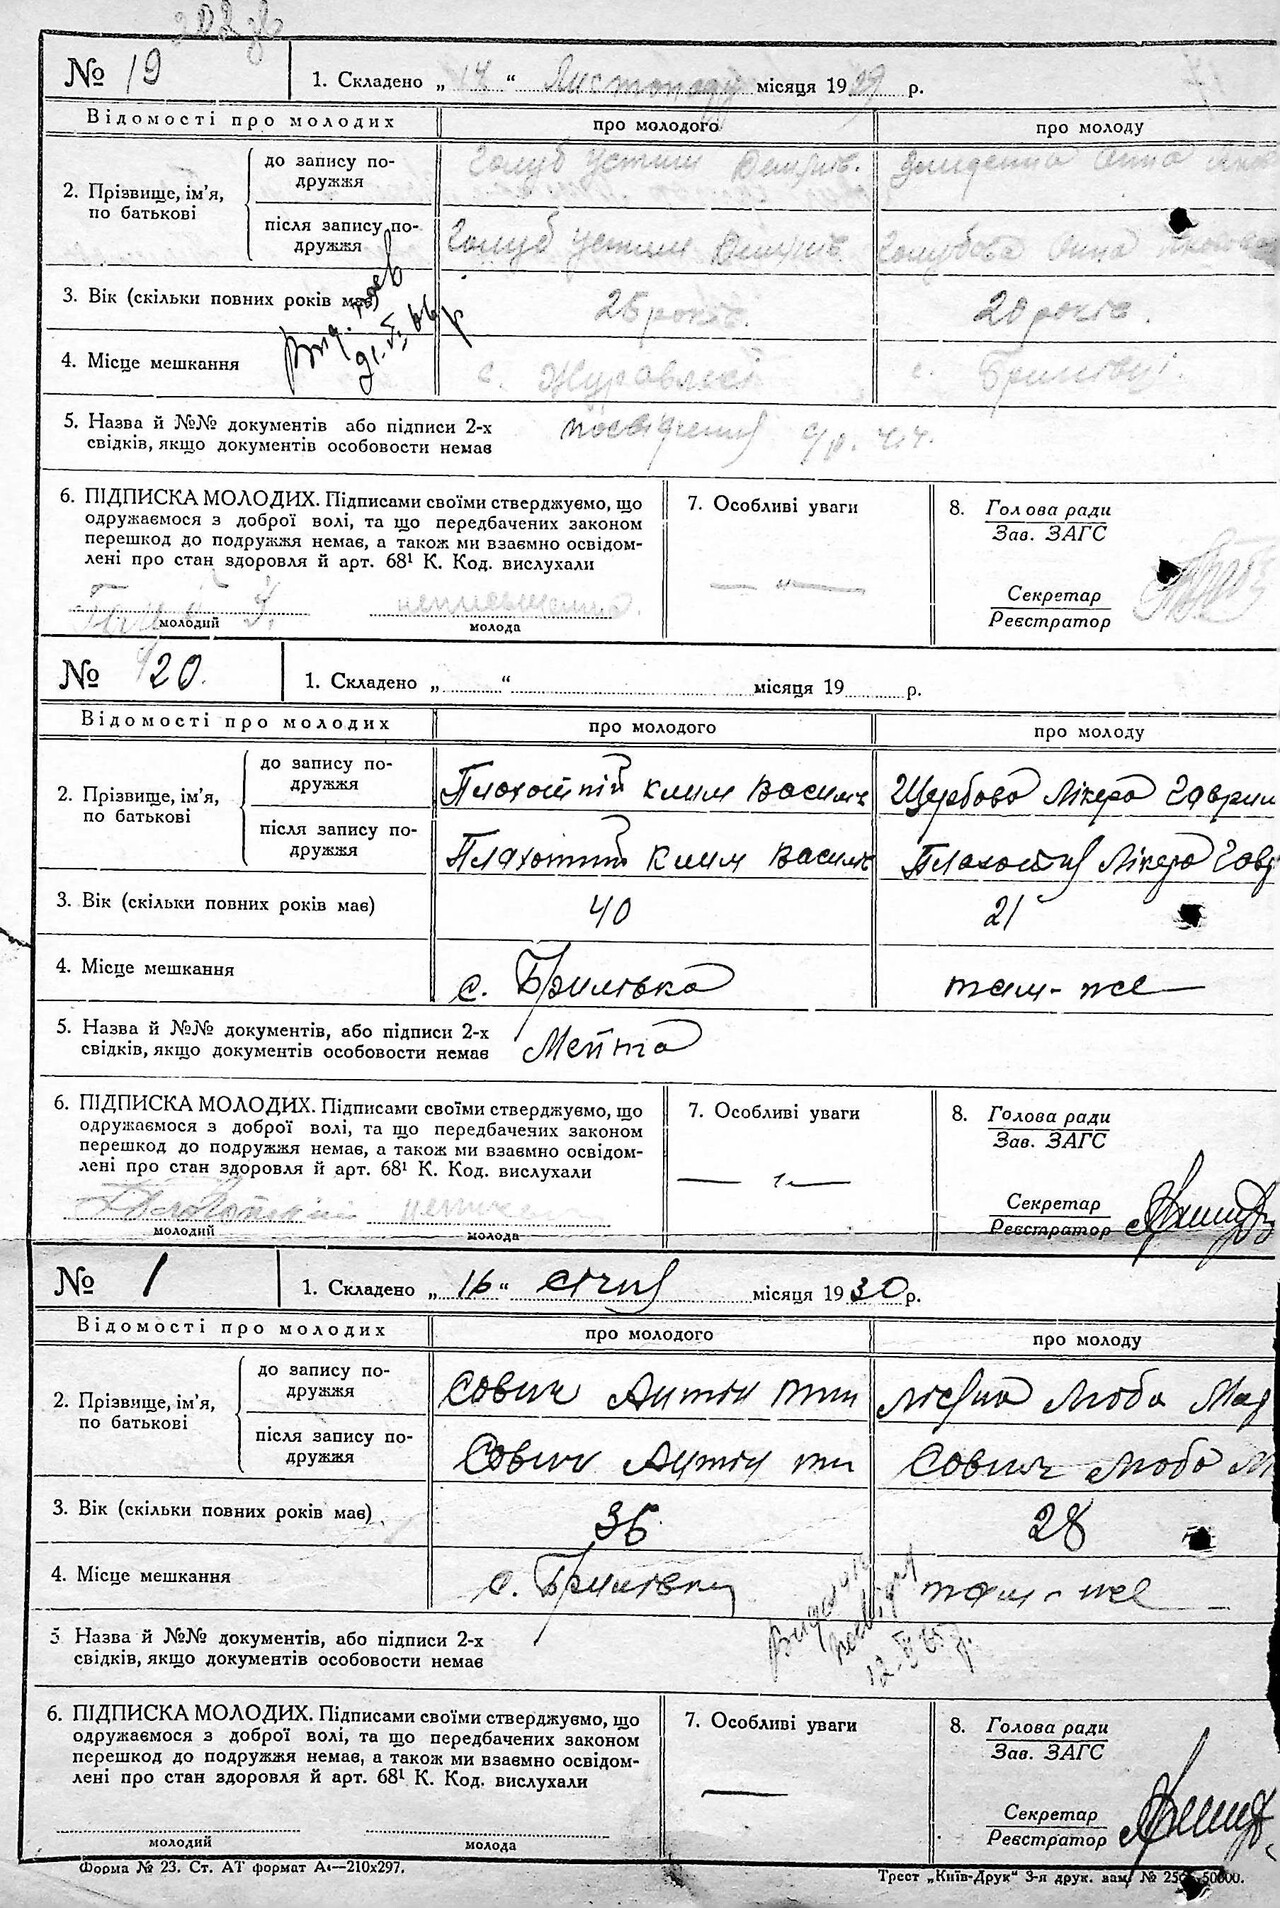 № 19
1. Складено „ 14 “ Листопаду місяця 1929 р.
Відомості про молодих
про молодого
про молоду
2. Прізвище, ім’я, по батькові
до запису по-
дружжя
Голуб Устим
Анна
після запису по-
дружжя
Голуб Устим
Голубова Анна
3. Вік (скільки повних років має)
25 років.
20 років.
4. Місце мешкання
с.
с.
5. Назва й №№ документів або підписи 2-х
свідків, якщо документів особовости немає
посвідчення с/р.
6. ПІДПИСКА МОЛОДИХ. Підписами своїми стверджуємо, що
одружаємося з доброї волі, та що передбачених законом
перешкод до подружжя немає, а також ми взаємно освідом-
лені про стан здоровля й арт. 68¹ К. Код. вислухали
неписьменна.
молодий
молода
7. Особливі уваги
— „ —
8. Голова ради
Зав. ЗАГС
Секретар
Реєстратор
№ 20.
1. Складено „ “ місяця 19 р.
Відомості про молодих
про молодого
про молоду
2. Прізвище, ім’я,
по батькові
до запису по-
дружжя
Плохотній Клим Василь
Щербова Лікера Гаврил
після запису по-
дружжя
Плахотній Клим Василь
Плахотня Лікера Гавр
3. Вік (скільки повних років має)
40
21
4. Місце мешкання
с. Брилівка
там-же
5. Назва й №№ документів, або підписи 2-х
свідків, якщо документів особовости немає
6. ПІДПИСКА МОЛОДИХ. Підписами своїми стверджуємо, що
одружаємося з доброї волі, та що передбачених законом
перешкод до подружжя немає, а також ми взаємно освідом-
лені про стан здоровля й арт. 68¹ К. Код. вислухали
молодий
молода
7. Особливі уваги
— „ —
8. Голова ради
Зав. ЗАГС
Секретар
Реєстратор
№ 1
1. Складено „ 16 “ січня місяця 1930 р.
Відомості про молодих
про молодого
про молоду
2. Прізвище, ім’я,
по батькові
до запису по-
дружжя
Сович Антін
Люба
після запису по-
дружжя
Сович Антін
Сович Люба
3. Вік (скільки повних років має)
36
28
4. Місце мешкання
с. Брилівка
там-же
5 Назва й №№ документів, або підписи 2-х
свідків, якщо документів особовости немає
6. ПІДПИСКА МОЛОДИХ. Підписами своїми стверджуємо, що
одружаємося з доброї волі, та що передбачених законом
перешкод до подружжя немає, а також ми взаємно освідом-
лені про стан здоровля й арт. 68¹ К. Код. вислухали
молодий
молода
7. Особливі уваги
—
8. Голова ради
Зав. ЗАГС
Секретар
Реєстратор
Форма № 23. Ст. АТ формат А4—210х297.
Трест „Київ-Друк“ 3-я друк. зам. №